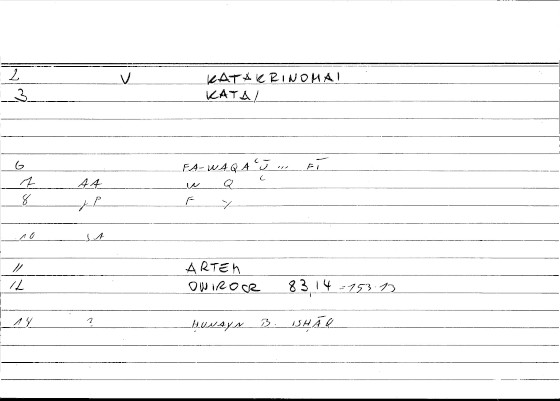 2 V KATAKRINOMAI
3 KATA/
6 FA-WAQAʿŪ ... FĪ
7 AA W Q ʿ
8 P F Y
10 A
11 ARTEM
12 ONIROCR 83,14 = 153.13
14 ? ḤUNAYN B. ISḤĀQ